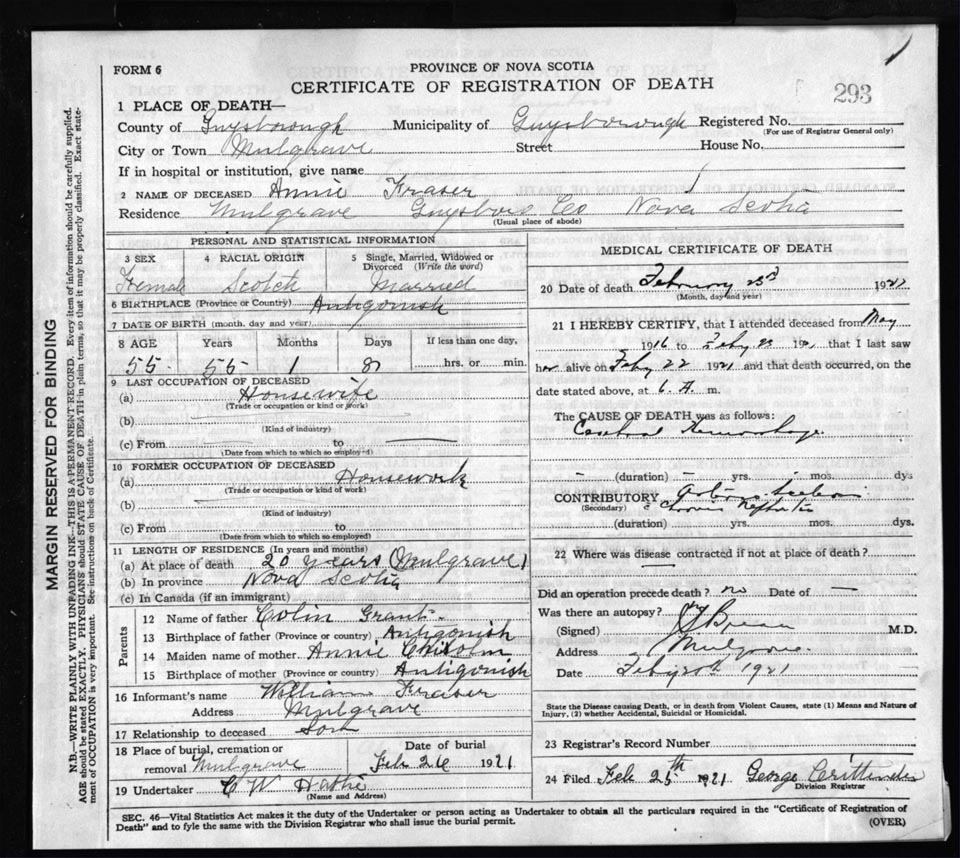 FORM 6
PROVINCE OF NOVA SCOTIA
CERTIFICATE OF REGISTRATION OF DEATH
293
1 PLACE OF DEATH—
County of Guysborough Municipality of Guysborough Registered No.
(For use of Registrar General only)
City or Town Mulgrave Street House No.
If in hospital or institution, give name
2 NAME OF DECEASED Annie Fraser
Residence Mulgrave Guysboro Co Nova Scotia
(Usual place of abode)
PERSONAL AND STATISTICAL INFORMATION
3 SEX 4 RACIAL ORIGIN 5 Single, Married, Widowed or
Divorced (Write the word)
Female Scotch Married
6 BIRTHPLACE (Province or Country) Antigonish
7 DATE OF BIRTH (month, day and year)
8 AGE Years Months Days If less than one day,
55 55 1 8 hrs. or min.
9 LAST OCCUPATION OF DECEASED
(a) Housewife
(Trade or occupation or kind or work)
(b)
(Kind of industry)
(c) From to
(Date from which to which so employed)
10 FORMER OCCUPATION OF DECEASED
(a) Housework
(Trade or occupation or kind of work)
(b)
(Kind of industry)
(c) From to
(Date from which to which so employed)
11 LENGTH OF RESIDENCE (In years and months)
(a) At place of death 20 years (Mulgrave)
(b) In province Nova Scotia
(c) In Canada (if an immigrant)
Parents
12 Name of father Colin Grant
13 Birthplace of father (Province or country) Antigonish
14 Maiden name of mother Annie Chisolm
15 Birthplace of mother (Province or country) Antigonish
16 Informant's name William Fraser
Address Mulgrave
17 Relationship to deceased Son
18 Place of burial, cremation or Date of burial
removal Mulgrave Feb 26 1921
19 Undertaker C W
(Name and Address)
MEDICAL CERTIFICATE OF DEATH
20 Date of death February 23rd 1921
(Month, day and year)
21 I HEREBY CERTIFY, that I attended deceased from May
1916 to Feby 192 that I last saw
her alive on Feby 22 1921 and that death occurred, on the
date stated above, at 6 A. m.
The CAUSE OF DEATH was as follows:
Hemorrhage
(duration) yrs. mos. dys
CONTRIBUTORY
(Secondary) Nephritis
(duration) yrs. mos. dys.
22 Where was disease contracted if not at place of death?
Did an operation precede death? no Date of —
Was there an autopsy?
(Signed) M.D.
Address Mulgrave
Date Feby 1921
State the Disease causing Death, or in death from Violent Causes, state (1) Means and Nature of
Injury, (2) whether Accidental, Suicidal or Homicidal.
23 Registrar's Record Number
24 Filed Feb 25th 1921 George Crittenden
Division Registrar
SEC. 46—Vital Statistics Act makes it the duty of the Undertaker or person acting as Undertaker to obtain all the particulars required in the "Certificate of Registration of
Death" and to fyle the same with the Division Registrar who shall issue the burial permit.
(OVER)
MARGIN RESERVED FOR BINDING
N.B.—WRITE PLAINLY WITH UNFADING INK—THIS IS A PERMANENT RECORD. Every item of information should be carefully supplied.
AGE should be stated EXACTLY. PHYSICIANS should STATE CAUSE OF DEATH in plain terms, so that it may be properly classified. Exact state-
ment of OCCUPATION is very important. See instructions on back of Certificate.